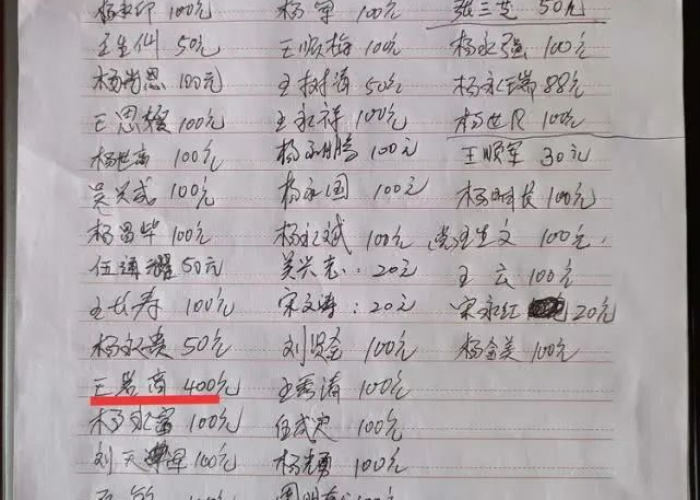 杨永印 100元 杨军 100元 张三芝 50元
王生仙 50元 王顺梅 100元 杨永强 100元
杨尚恩 100元 王树海 50元 杨永瑞 88元
王思敏 100元 王永祥 100元 杨世民 100元
杨世高 100元 杨永鹏 100元 王顺军 30元
吴兴武 100元 杨永国 100元 杨明长 100元
杨昌华 100元 杨永斌 100元 王生文 100元
伍通耀 50元 吴兴志:20元 王云 100元
王长寿 100元 宋文涛:20元 宋永红 20元
杨永英 50元 刘贤金 100元 杨金美 100元
王岩商 400元 王秀清 100元
杨永富 100元 伍成忠 100元
刘天 100元 杨光勇 100元